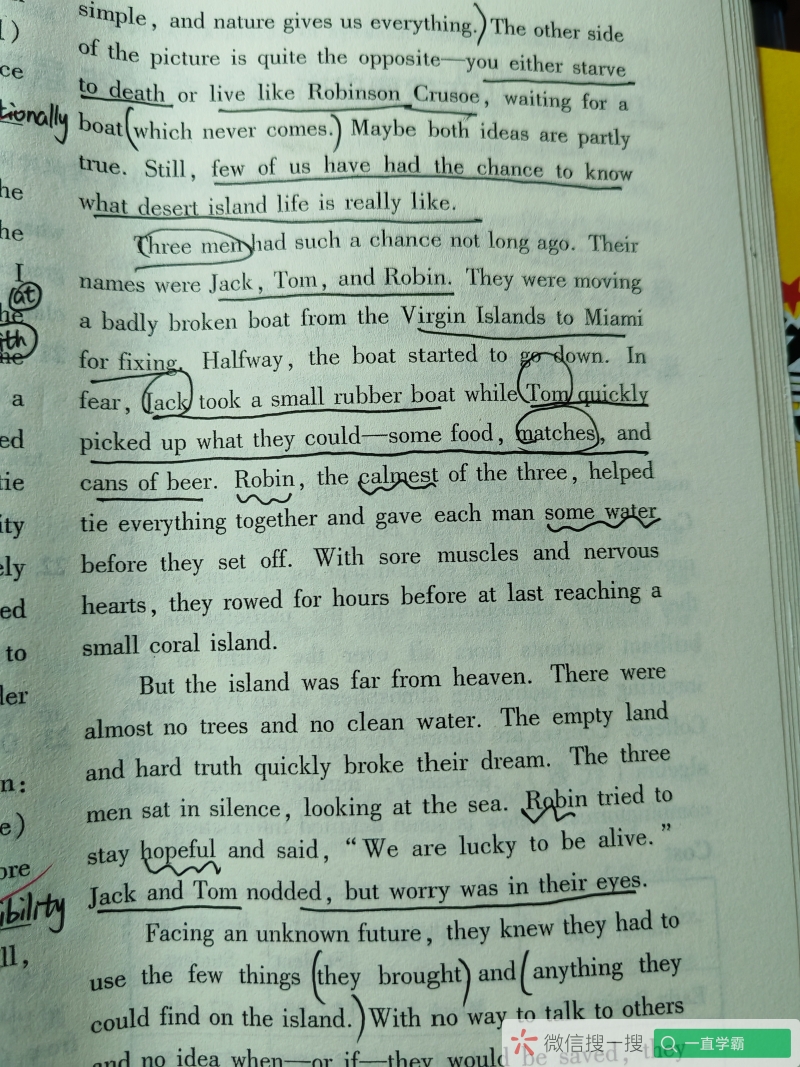 simple, and nature gives us everything.) The other side
of the picture is quite the opposite—you either starve
to death or live like Robinson Crusoe, waiting for a
boat (which never comes.) Maybe both ideas are partly
true. Still, few of us have had the chance to know
what desert island life is really like.
Three men had such a chance not long ago. Their
names were Jack, Tom, and Robin. They were moving
a badly broken boat from the Virgin Islands to Miami
for fixing. Halfway, the boat started to go down. In
fear, Jack took a small rubber boat while Tom quickly
picked up what they could—some food, matches, and
cans of beer. Robin, the calmest of the three, helped
tie everything together and gave each man some water
before they set off. With sore muscles and nervous
hearts, they rowed for hours before at last reaching a
small coral island.
But the island was far from heaven. There were
almost no trees and no clean water. The empty land
and hard truth quickly broke their dream. The three
men sat in silence, looking at the sea. Robin tried to
stay hopeful and said, “We are lucky to be alive.”
Jack and Tom nodded, but worry was in their eyes.
Facing an unknown future, they knew they had to
use the few things (they brought) and (anything they
could find on the island.) With no way to talk to others
and no idea when—or if—they would be saved, they
l)
ce
tionally
he
he
I
at
he
ith
a
ed
tie
ity
ely
ed
to
ler
n:
e)
ore
ibility
ll,
微信搜一搜
一直学霸